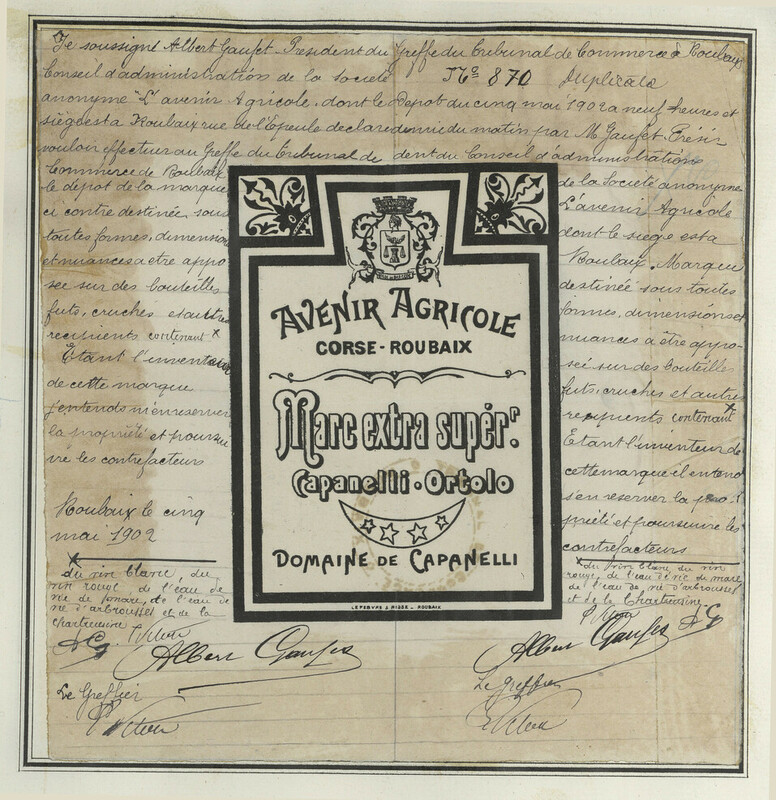 Je soussigné Albert Gaufet Président du
Conseil d'administration de la Société
anonyme "L'avenir Agricole" dont le
siège est à Roubaix rue de l'Epeule declare
vouloir effectuer au Greffe du Tribunal de
Commerce de Roubaix
le dépôt de la marque
ci contre destinée, sous
toutes formes, dimensions
et nuances a etre appo-
sée sur des bouteilles
futs, cruches et autres
recipients contenant x
Etant l'inventeur
de cette marque
j'entends m'en reserver
la propriété et poursui
vre les contrefacteurs
Roubaix le cinq
mai 1902
x du vin blanc, du
vin rouge, de l'eau de
vie de marc, de l'eau de
vie d'arbousses et de la
chartreuse
AG
Albert Gaufet
Le Greffier
Greffe du Tribunal de Commerce à Roubaix
No 870 Duplicata
Depot du cinq mai 1902 a neuf heures et
demie du matin par M. Gaufet Prési-
dent du Conseil d'administrations
de la Société anonyme
L'avenir Agricole
dont le siege est a
Roubaix. Marque
destinée sous toutes
formes, dimensions et
nuances a être appo-
sée sur des bouteilles
futs, cruches et autres
recipients contenant x
Etant l'inventeur de
cette marque il entend
s'en reserver la pro-
priété et poursuivre les
contrefacteurs
x du vin blanc du vin
rouge, de l'eau de vie de marc
de l'eau de vie d'arbousses
et de la Chartreuse
AG
Albert Gaufet
Le Greffier
AVENIR AGRICOLE
CORSE-ROUBAIX
Marc extra supérr.
Capanelli·Ortolo
DOMAINE DE CAPANELLI
LEFEBVRE & NISSE - ROUBAIX